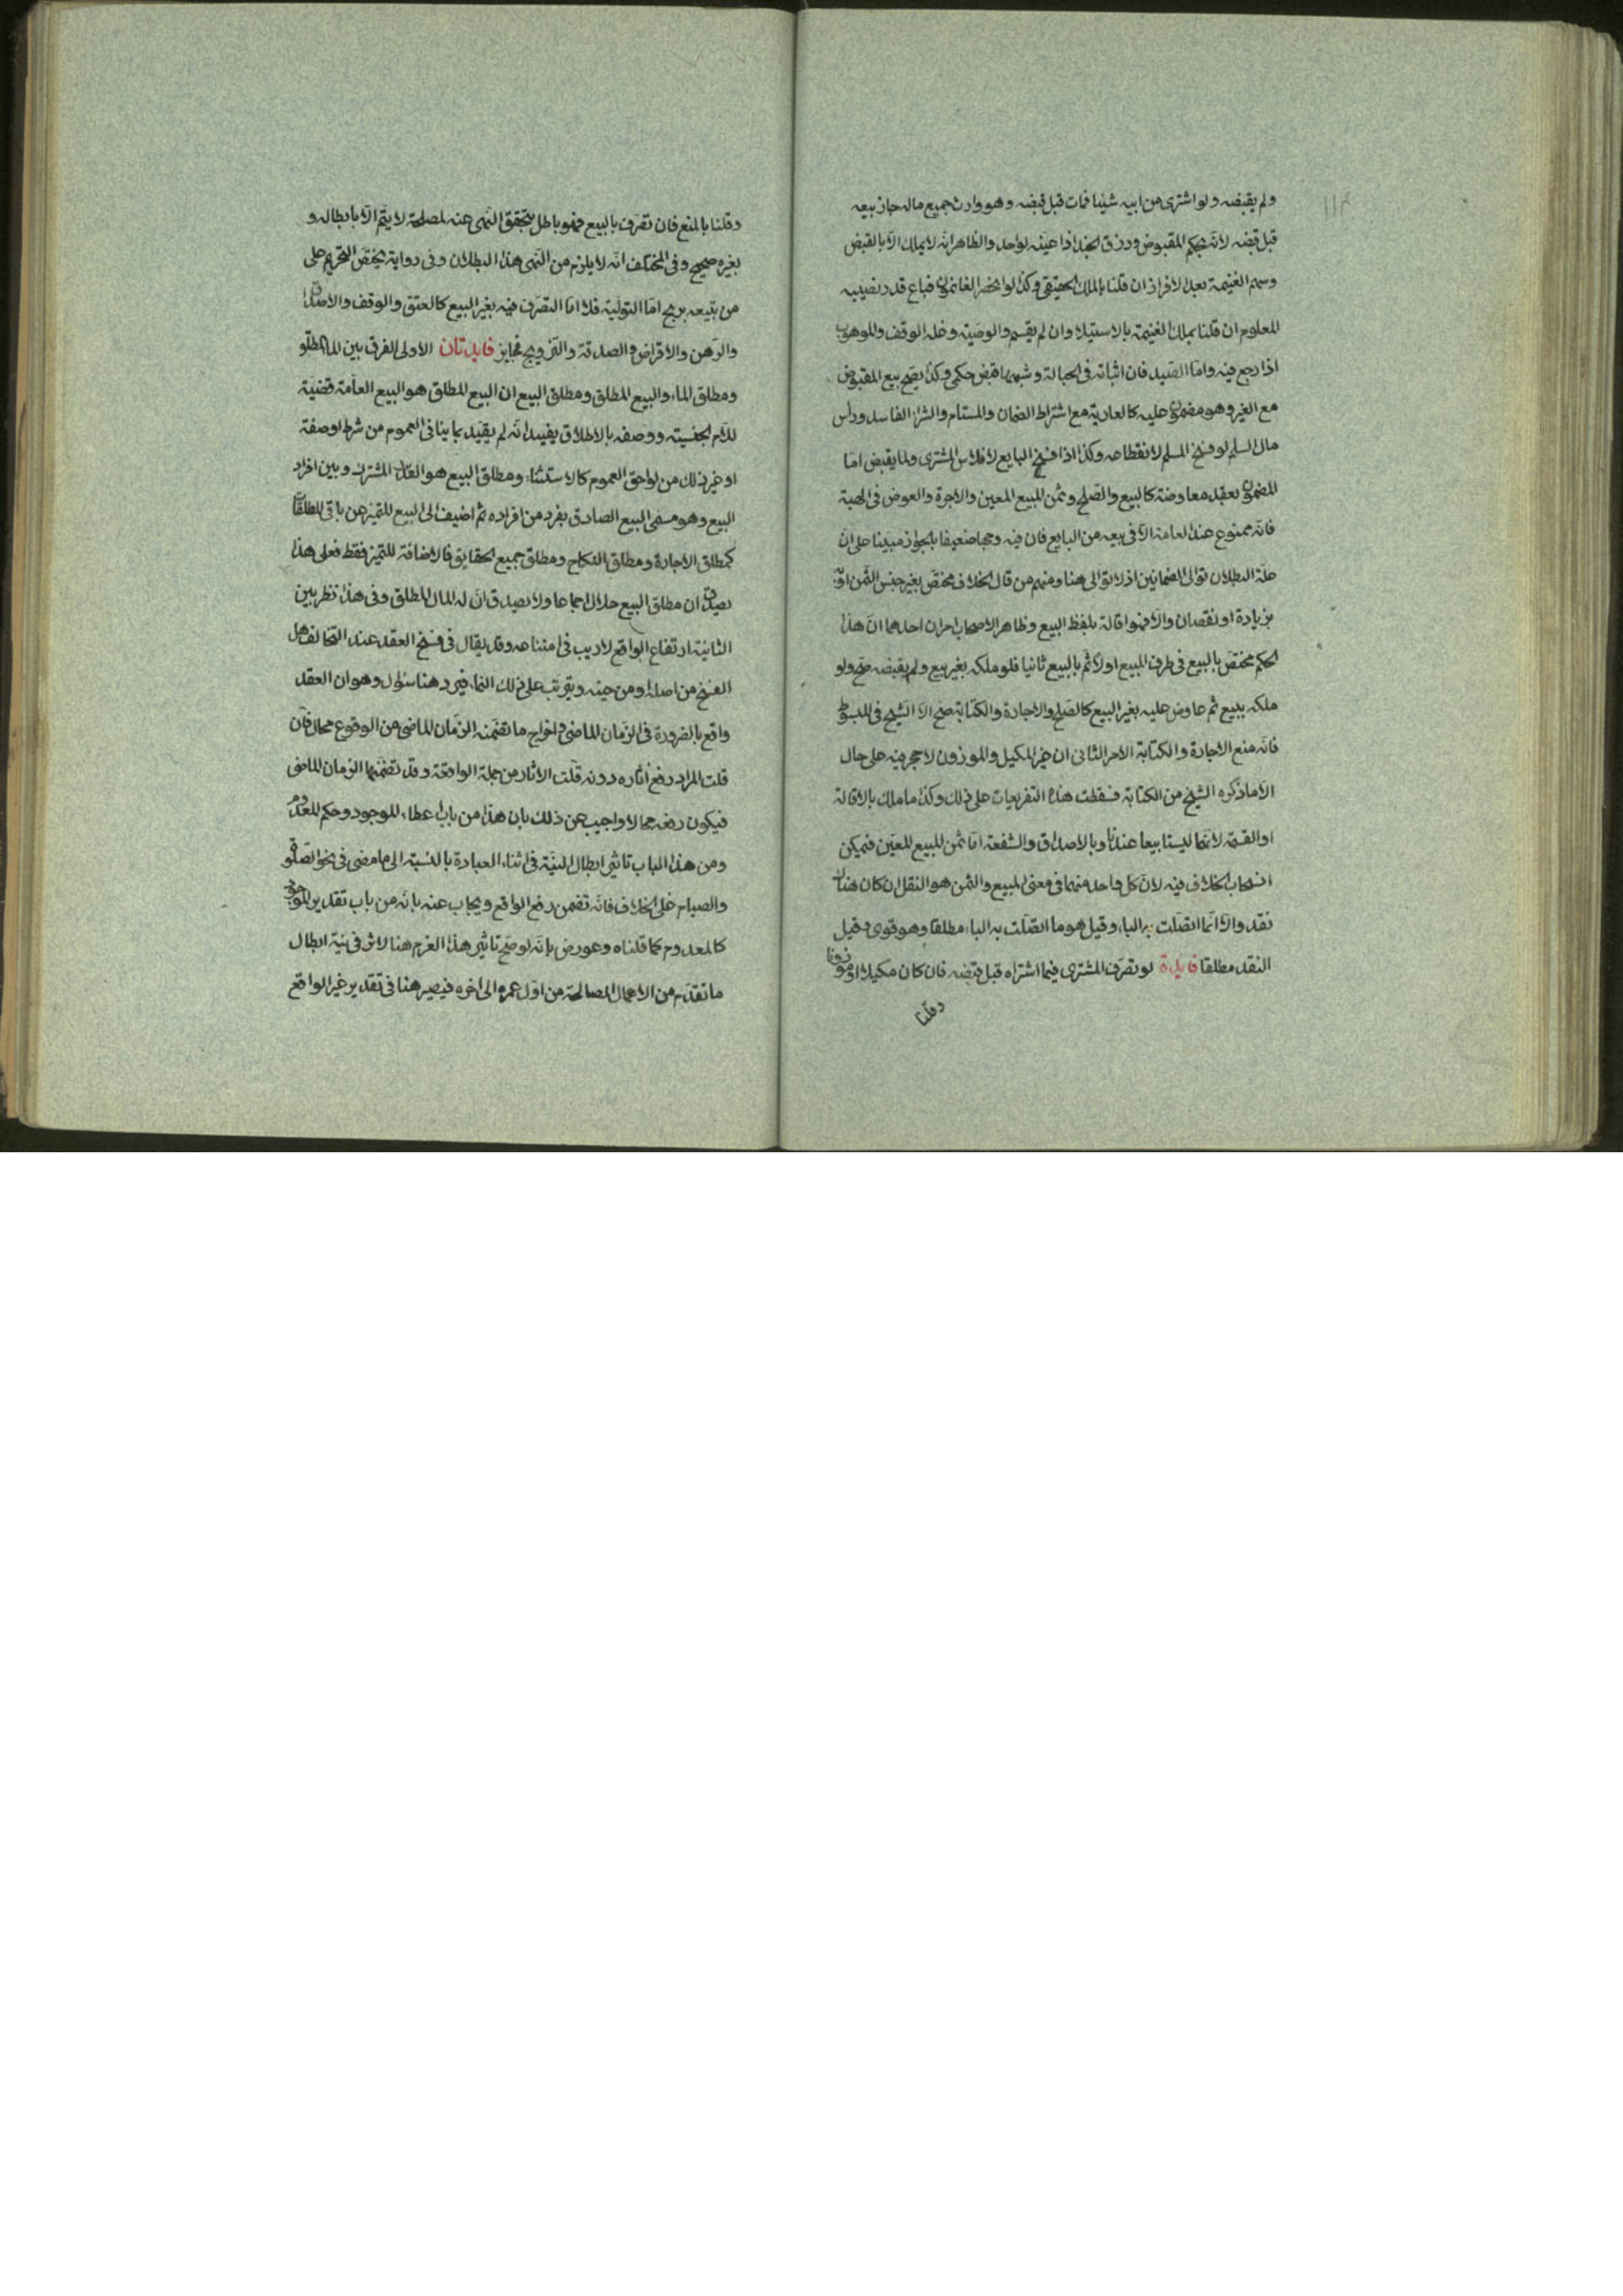 ولم يقبضه ولو اشترى من ابيه شيئا فمات قبل قبضه وهو وارث جميع ماله جاز بيعه
قبل قبضه لانه بحكم المقبوض ورزق الجند اذا عينه لواحد والظاهر انه لا يملك الا بالقبض
وسهم الغنيمة بعد الافراز ان قلنا بالملك الحقيقي وكذا لو احضر الغانمون فباع قدر نصيبه
المعلوم ان قلنا بملك الغنيمة بالاستيلا وان لم يقسم والوصية وغلة الوقف والموهوب
اذا رجع فيه واما الصيد فان اثباته في الحبالة وشبهها قبض حكمي وكذا يصح بيع المقبوض
مع الغير وهو مضمون عليه كالعارية مع اشتراط الضمان والمستام والشرا الفاسد وراس
مال السلم لو فسخ المسلم لانقطاعه وكذا اذا فسخ البايع لافلاس المشترى ولما يقبض اما
المضمون بعقد معاوضة كالبيع والصلح وثمن المبيع المعين والاجرة والعوض في الهبة
فانه ممنوع عند العامة الا في بيعه من البايع فان فيه وجها ضعيفا بالجواز مبينا على ان
علة البطلان توالى الضمانين اذ لا توالى هنا ومنهم من قال الخلاف مختص بغير جنس الثمن او
بزيادة او نقصان والا فهو اقالة بلفظ البيع وظاهر الاصحاب امران احدهما ان هذا
الحكم مختص بالبيع في طرف المبيع اولا ثم بالبيع ثانيا فلو ملكه بغير بيع ولم يقبضه صح ولو
ملكه ببيع ثم عاوض عليه بغير البيع كالصلح والاجارة والكتابة صح الا الشيخ في المبسوط
فانه منع الاجارة والكتابة الامر الثانى ان غير المكيل والموزون لا حجر فيه على حال
الا ما ذكره الشيخ من الكتابة فسقطت هذه التفريعات على ذلك وكذا ما ملك بالاقالة
او القسمة لانهما ليستا بيعا عندنا وبالاصداق والشفعة اما ثمن المبيع المعين فيمكن
انسحاب الخلاف فيه لان كل واحد منهما في معنى المبيع والثمن هو النقد ان كان هناك
نقد والا فما اتصلت به الباء وقيل هو ما اتصلت به الباء مطلقا وهو قوى وقيل
النقد مطلقا فايدة لو تصرف المشترى فيما اشتراه قبل قبضه فان كان مكيلا او موزونا
وقلنا
وقلنا بالمنع فان تصرف بالبيع فهو باطل لتحقق النهى عنه لمصلحة لا يتم الا بابطاله و
بغيره صحيح وفي المختلف انه لا يلزم من النهى هذا البطلان وفى رواية يختص التحريم على
من يبيعه بربح اما التولية فلا اما التصرف فيه بغير البيع كالعتق والوقف والاصداق
والرهن والاقراض والصدقة والتزويج فجايز فايدتان الاولى الفرق بين الماء المطلق
ومطلق الماء والبيع المطلق ومطلق البيع ان البيع المطلق هو البيع العامة قضية
للام الجنسية ووصفه بالاطلاق يفيد انه لم يقيد بما ينافى العموم من شرط او صفة
او غير ذلك من لواحق العموم كالاستثناء ومطلق البيع هو القدر المشترك وبين افراد
البيع وهو مسمى البيع الصادق بفرد من افراده ثم اضيف الى البيع للتميز عن باقى المطلقات
كمطلق الاجارة ومطلق النكاح ومطلق جميع الحقايق فالاضافة للتميز فقط فعلى هذا
يصدق ان مطلق البيع حلال اجماعا ولا يصدق ان له المال المطلق وفى هذا نظر بين
الثانية ارتفاع الواقع لا ريب في امتناعه وقد يقال في فسخ العقد عند التحالف هل
الفسخ من اصله او من حينه ويترتب على ذلك النماء فيرد هنا سؤال وهو ان العقد
واقع بالضرورة في الزمان الماضى واخراج ما تضمنه الزمان الماضى من الوقوع محال فان
قلت المراد رفع اثاره دونه قلت الاثار من جملة الواقعة وقد تضمنها الزمان الماضى
فيكون رفعه محالا واجيب عن ذلك بان هذا من باب اعطاء للموجود وحكم المعدوم
ومن هذا الباب تاثير ابطال النية في اثناء العبادة بالنسبة الى ما مضى في نحو الصلوة
والصيام على الخلاف فانه تضمن رفع الواقع ويجاب عنه بانه من باب تقدير الموجود
كالمعدوم كما قلناه وعورض بانه لو صح تاثير هذا العزم هنا لاثر في نية ابطال
ما تقدم من الاعمال الصالحة من اول عمره الى اخره فيصير هنا في تقدير غير الواقع